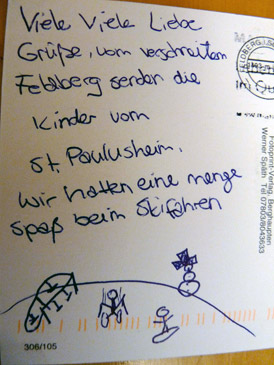 Viele Viele Liebe
Grüße, vom verschneiten
Feldberg senden die
Kinder vom
St. Paulusheim.
Wir hatten eine menge
Spaß beim Skifahren
306/105
Fotoprint-Verlag, Berghaupten
Werner Späth Tel 07803/8043633